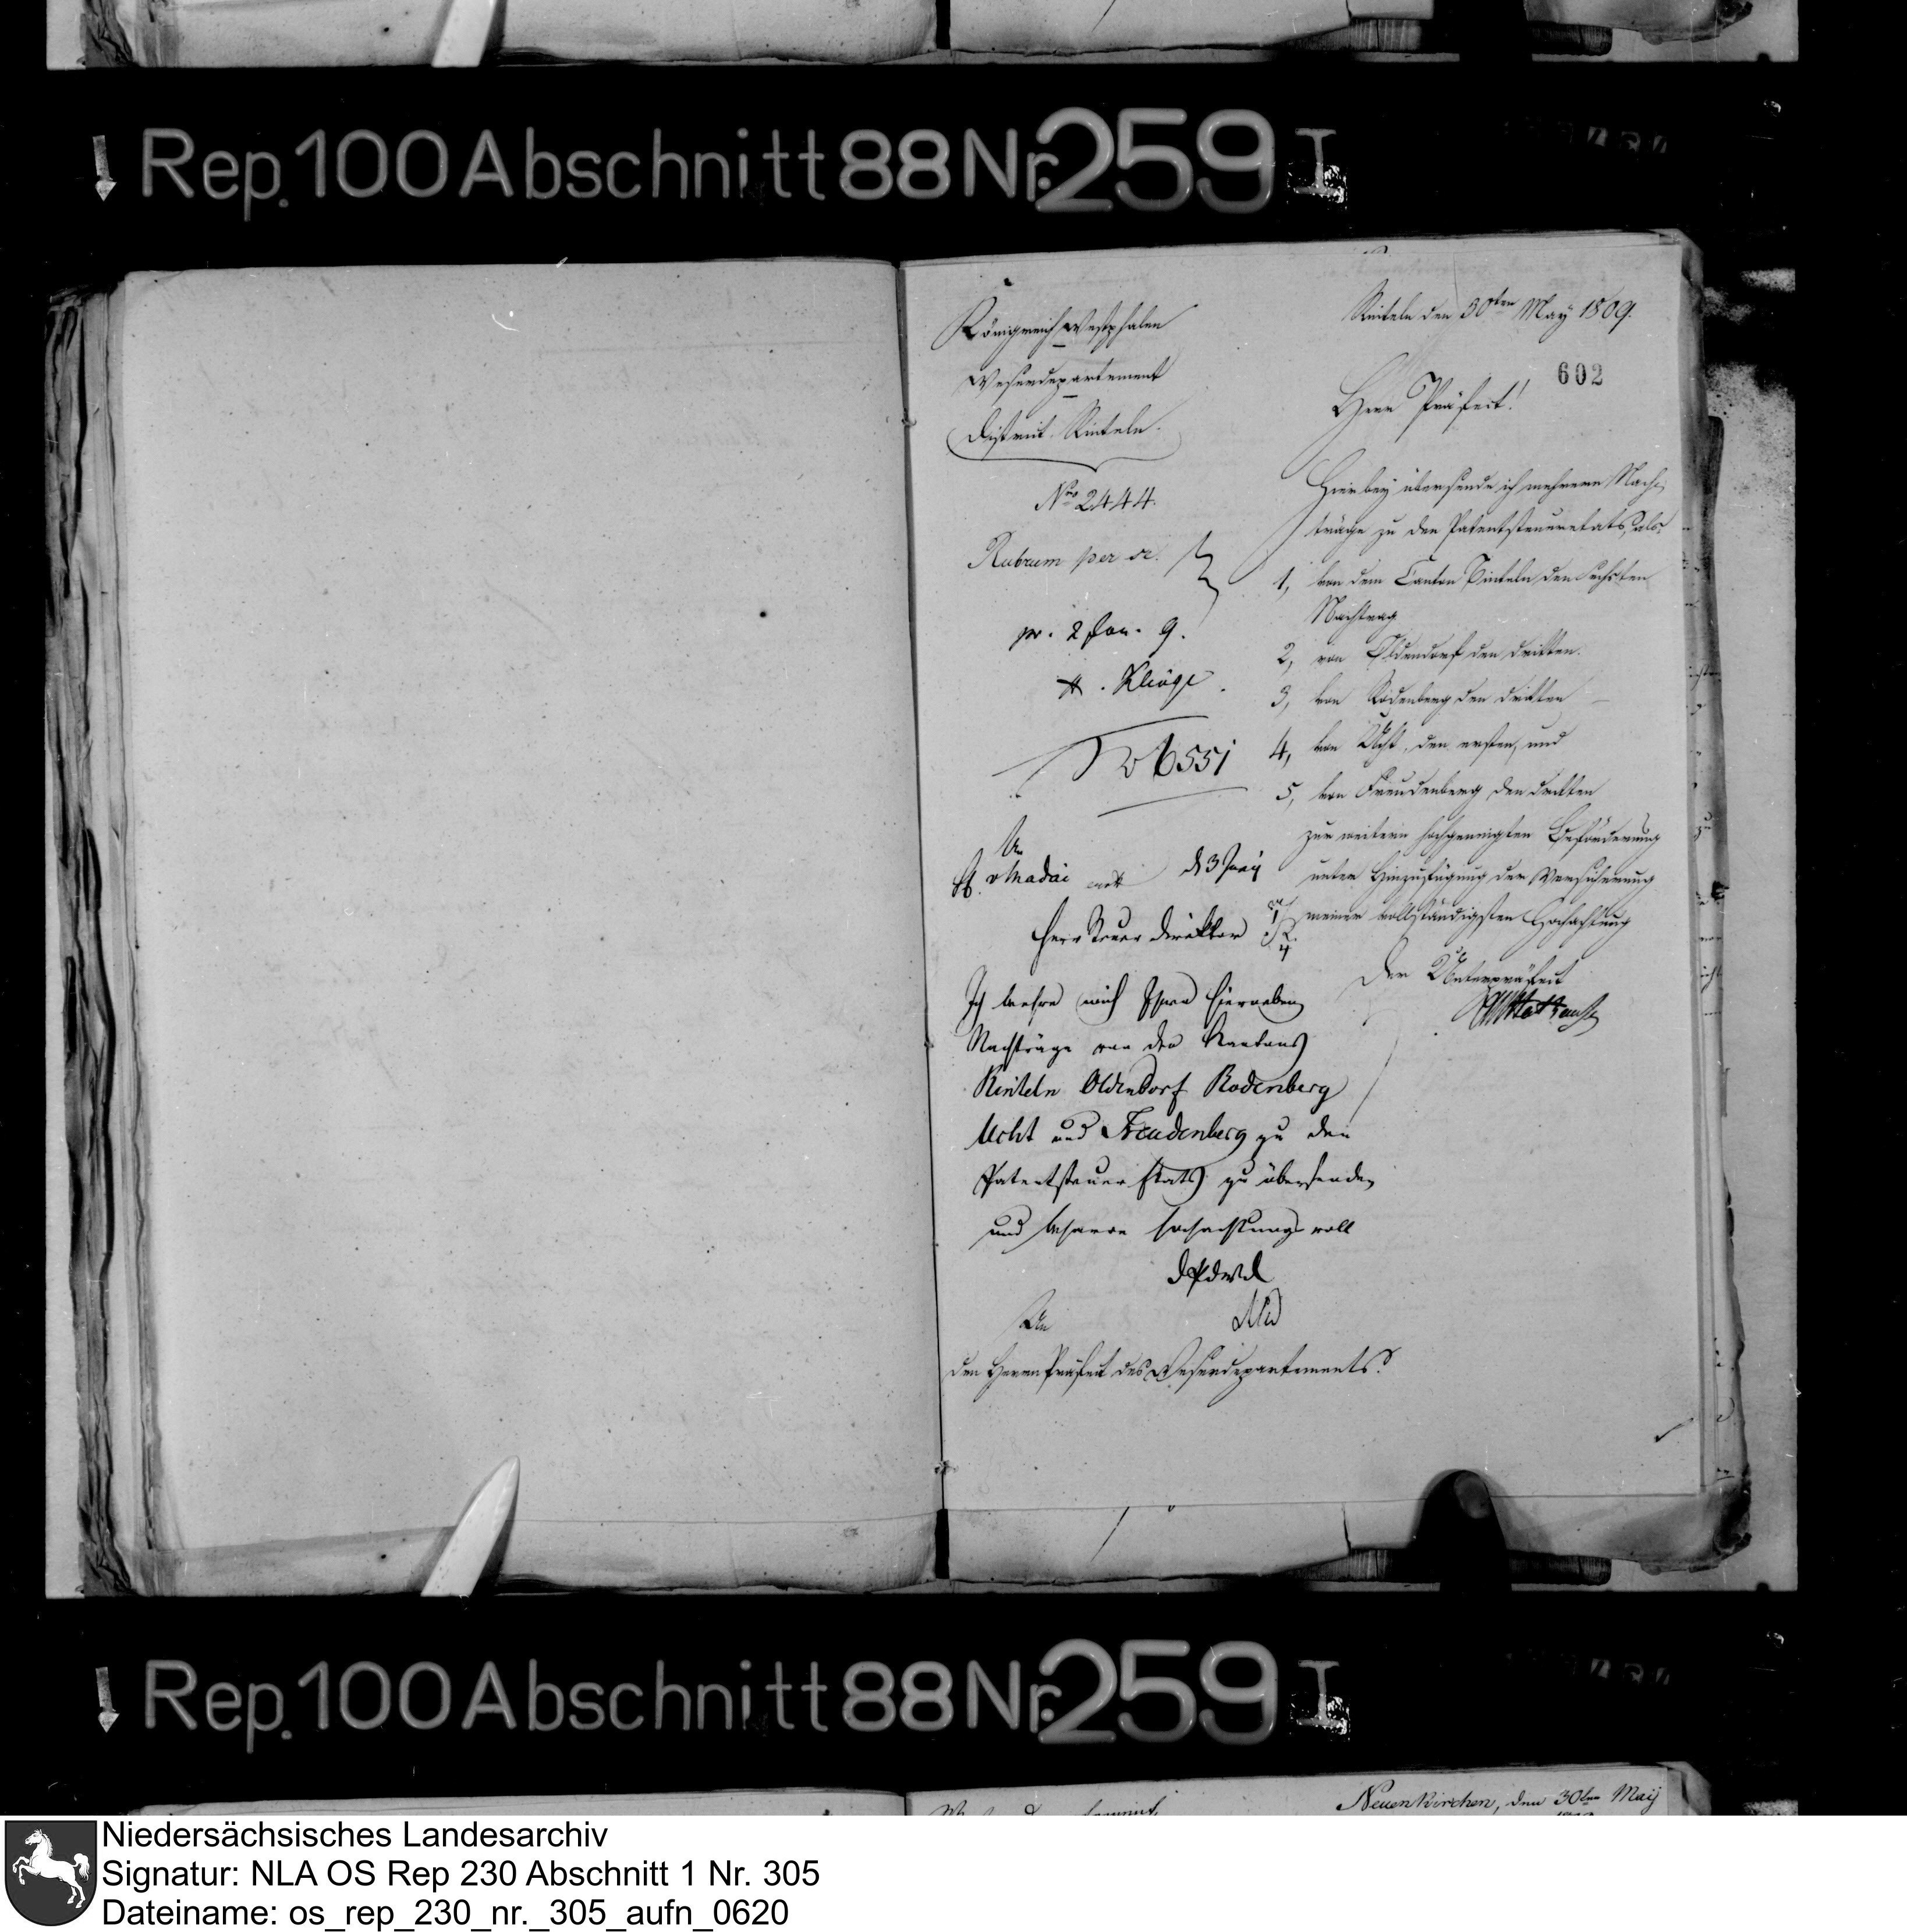 Rep. 100 Abschnitt 88 Nr. 259 I
Königreich Westphalen
Weserdepartement
District Rinteln.
Nro 2444.
Rubrum per se.
pr. 2 Jun. 9.
No 6551
Rinteln den 30ten May 1809.
602
Herr Präfect!
Hierbey übersende ich mehrere Nach-
träge zu den Patentsteueretats, als
1, von dem Canton Rinteln den sechsten
Nachtrag
2, von Oldendorf den dritten.
3, von Rodenberg den dritten
4, von Ucht, den ersten, und
5, von Freudenberg den dritten
zur weitern hochgeneigten Beförderung
unter Hinzufügung der Versicherung
meiner vollständigsten Hochachtung
Der Unterpräfect
An
H. v Madai
d 3 Juny
Herr Steuer Direktor
Ich beehre mich Ihnen hierneben
Nachträge von den Kantons
Rinteln Oldendorf Rodenberg
Ucht und Freudenberg zu den
Patentsteuer Etats zu übersenden
und beharre hochachtungsvoll
d P d W d
An
den Herrn Präfect des Weserdepartements.
Rep. 100 Abschnitt 88 Nr. 259 I
Neuenkirchen, den 30ten Maij
Niedersächsisches Landesarchiv
Signatur: NLA OS Rep 230 Abschnitt 1 Nr. 305
Dateiname: os_rep_230_nr._305_aufn_0620